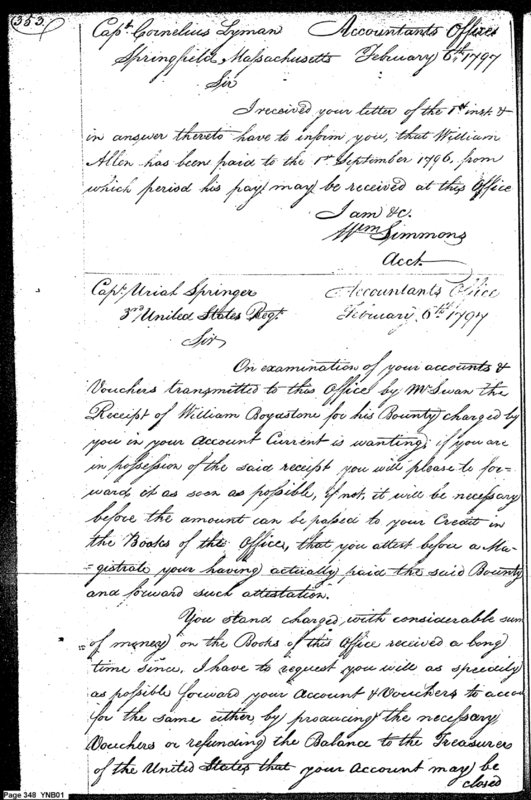 353
Capt. Cornelius Lyman Accountants Office
Springfield, Massachusetts February 6th, 1797
Sir
I received your letter of the 1st inst. &
in answer thereto have to inform you, that William
Allen has been paid to the 1st September 1796, from
which period his pay may be received at this Office
I am &c.
Wm Simmons
Acct.
Capt. Uriah Springer Accountants Office
3rd United States Regt. February 6th 1797
Sir
On examination of your accounts &
Vouchers transmitted to this Office by Mr Swan the
Receipt of William Boydstone for his Bounty charged by
you in your Account Current is wanting, if you are
in possession of the said receipt you will please to for-
ward it as soon as possible, if not, it will be necessary
before the amount can be passed to your Credit in
the Books of the Office, that you attest before a Ma-
=gistrate your having actually paid the said Bounty
and forward such attestation.
You stand charged with considerable sum
of money on the Books of this Office received a long
time since, I have to request you will as speedily
as possible forward your Account & Vouchers to acco
for the same either by producing the necessary
Vouchers or refunding the Balance to the Treasurer
of the United States that your Account may be
closed
Page 348 YNB01